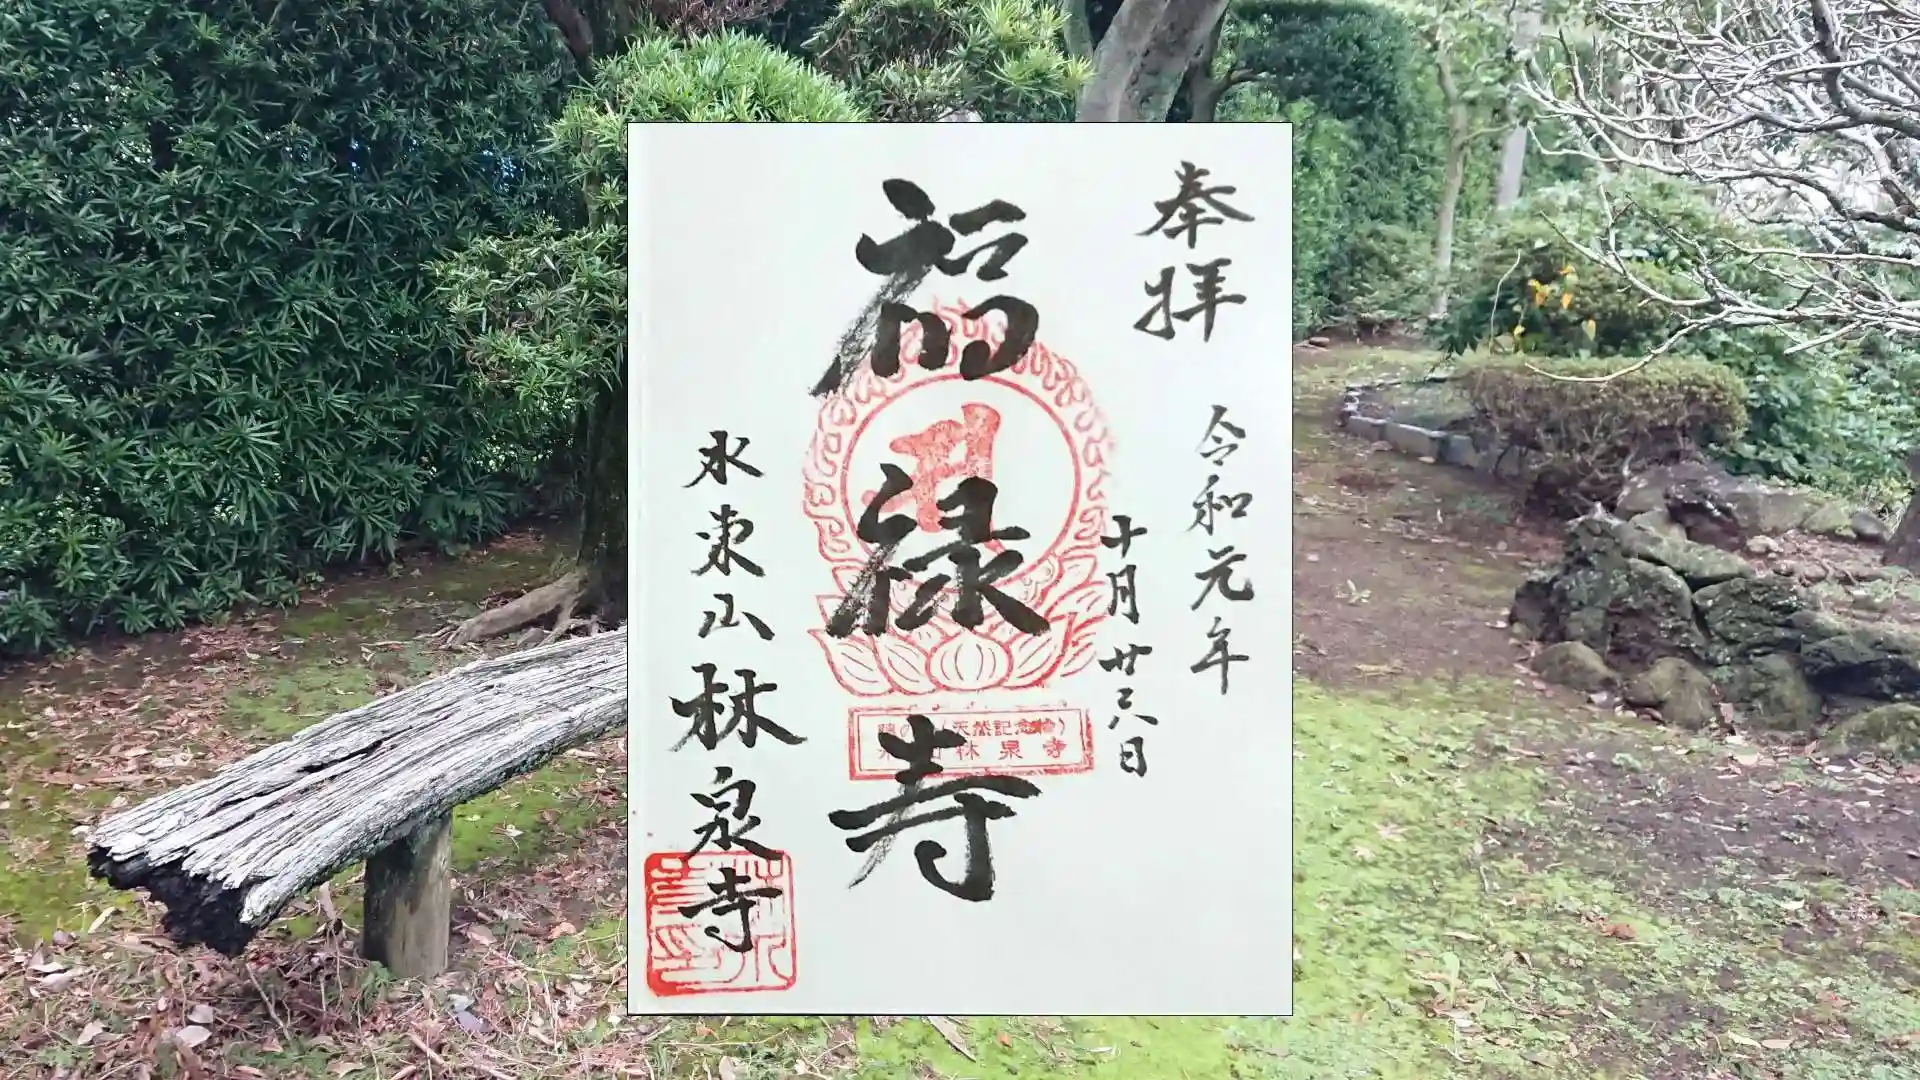 奉拝
令和元年
十月廿六日
福禄寿
(天然記念物)
林泉寺
水東山林泉寺